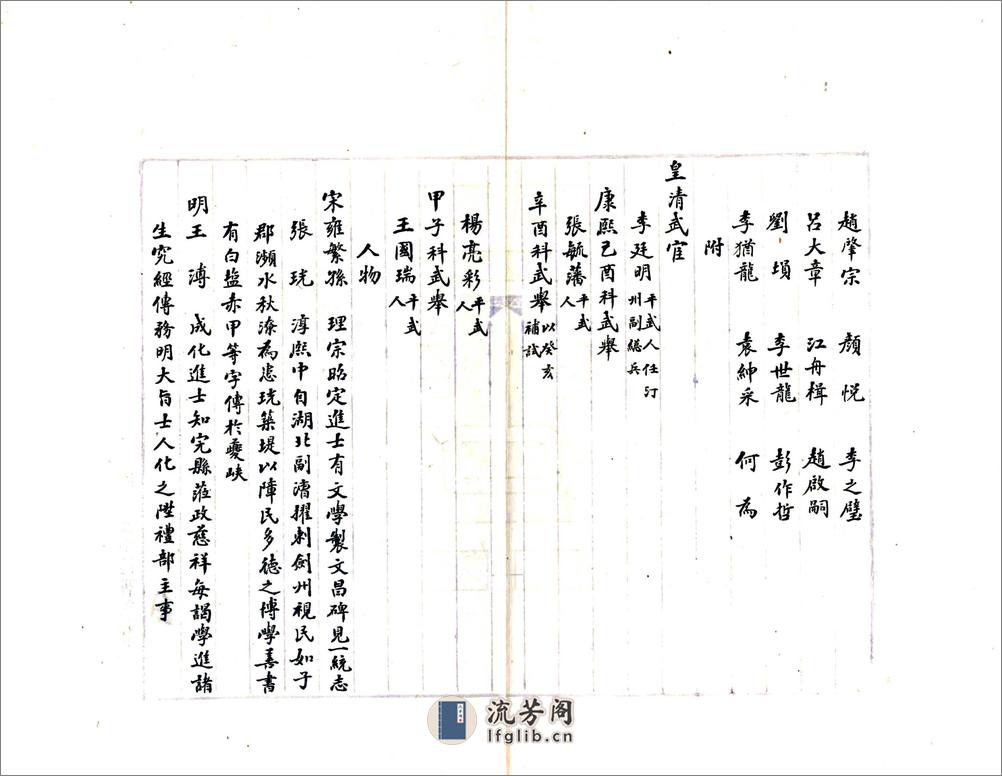 趙肇宗　顏悅　李之璧
呂大章　江舟楫　趙啟嗣
劉塤　李世龍　彭作哲
李猶龍　袁紳采　何為
附
皇清武宦
李廷明平武人任汀州副總兵
康熙己酉科武舉
張毓藩平武人
辛酉科武舉以癸亥補試
楊亮彩平武人
甲子科武舉
王國瑞平武人
人物
宋雍繁孫　理宗昭定進士有文學製文昌碑見一統志
張珖　淳熙中自湖北副漕擢刺劍州視民如子
郡瀕水秋潦為患珖築堤以障民多德之博學善書
有白鹽赤甲等字傳於夔峽
明王溥　成化進士知完縣蒞政慈祥每謁學進諸
生究經傳務明大旨士人化之陞禮部主事
流芳阁
lfglib.cn